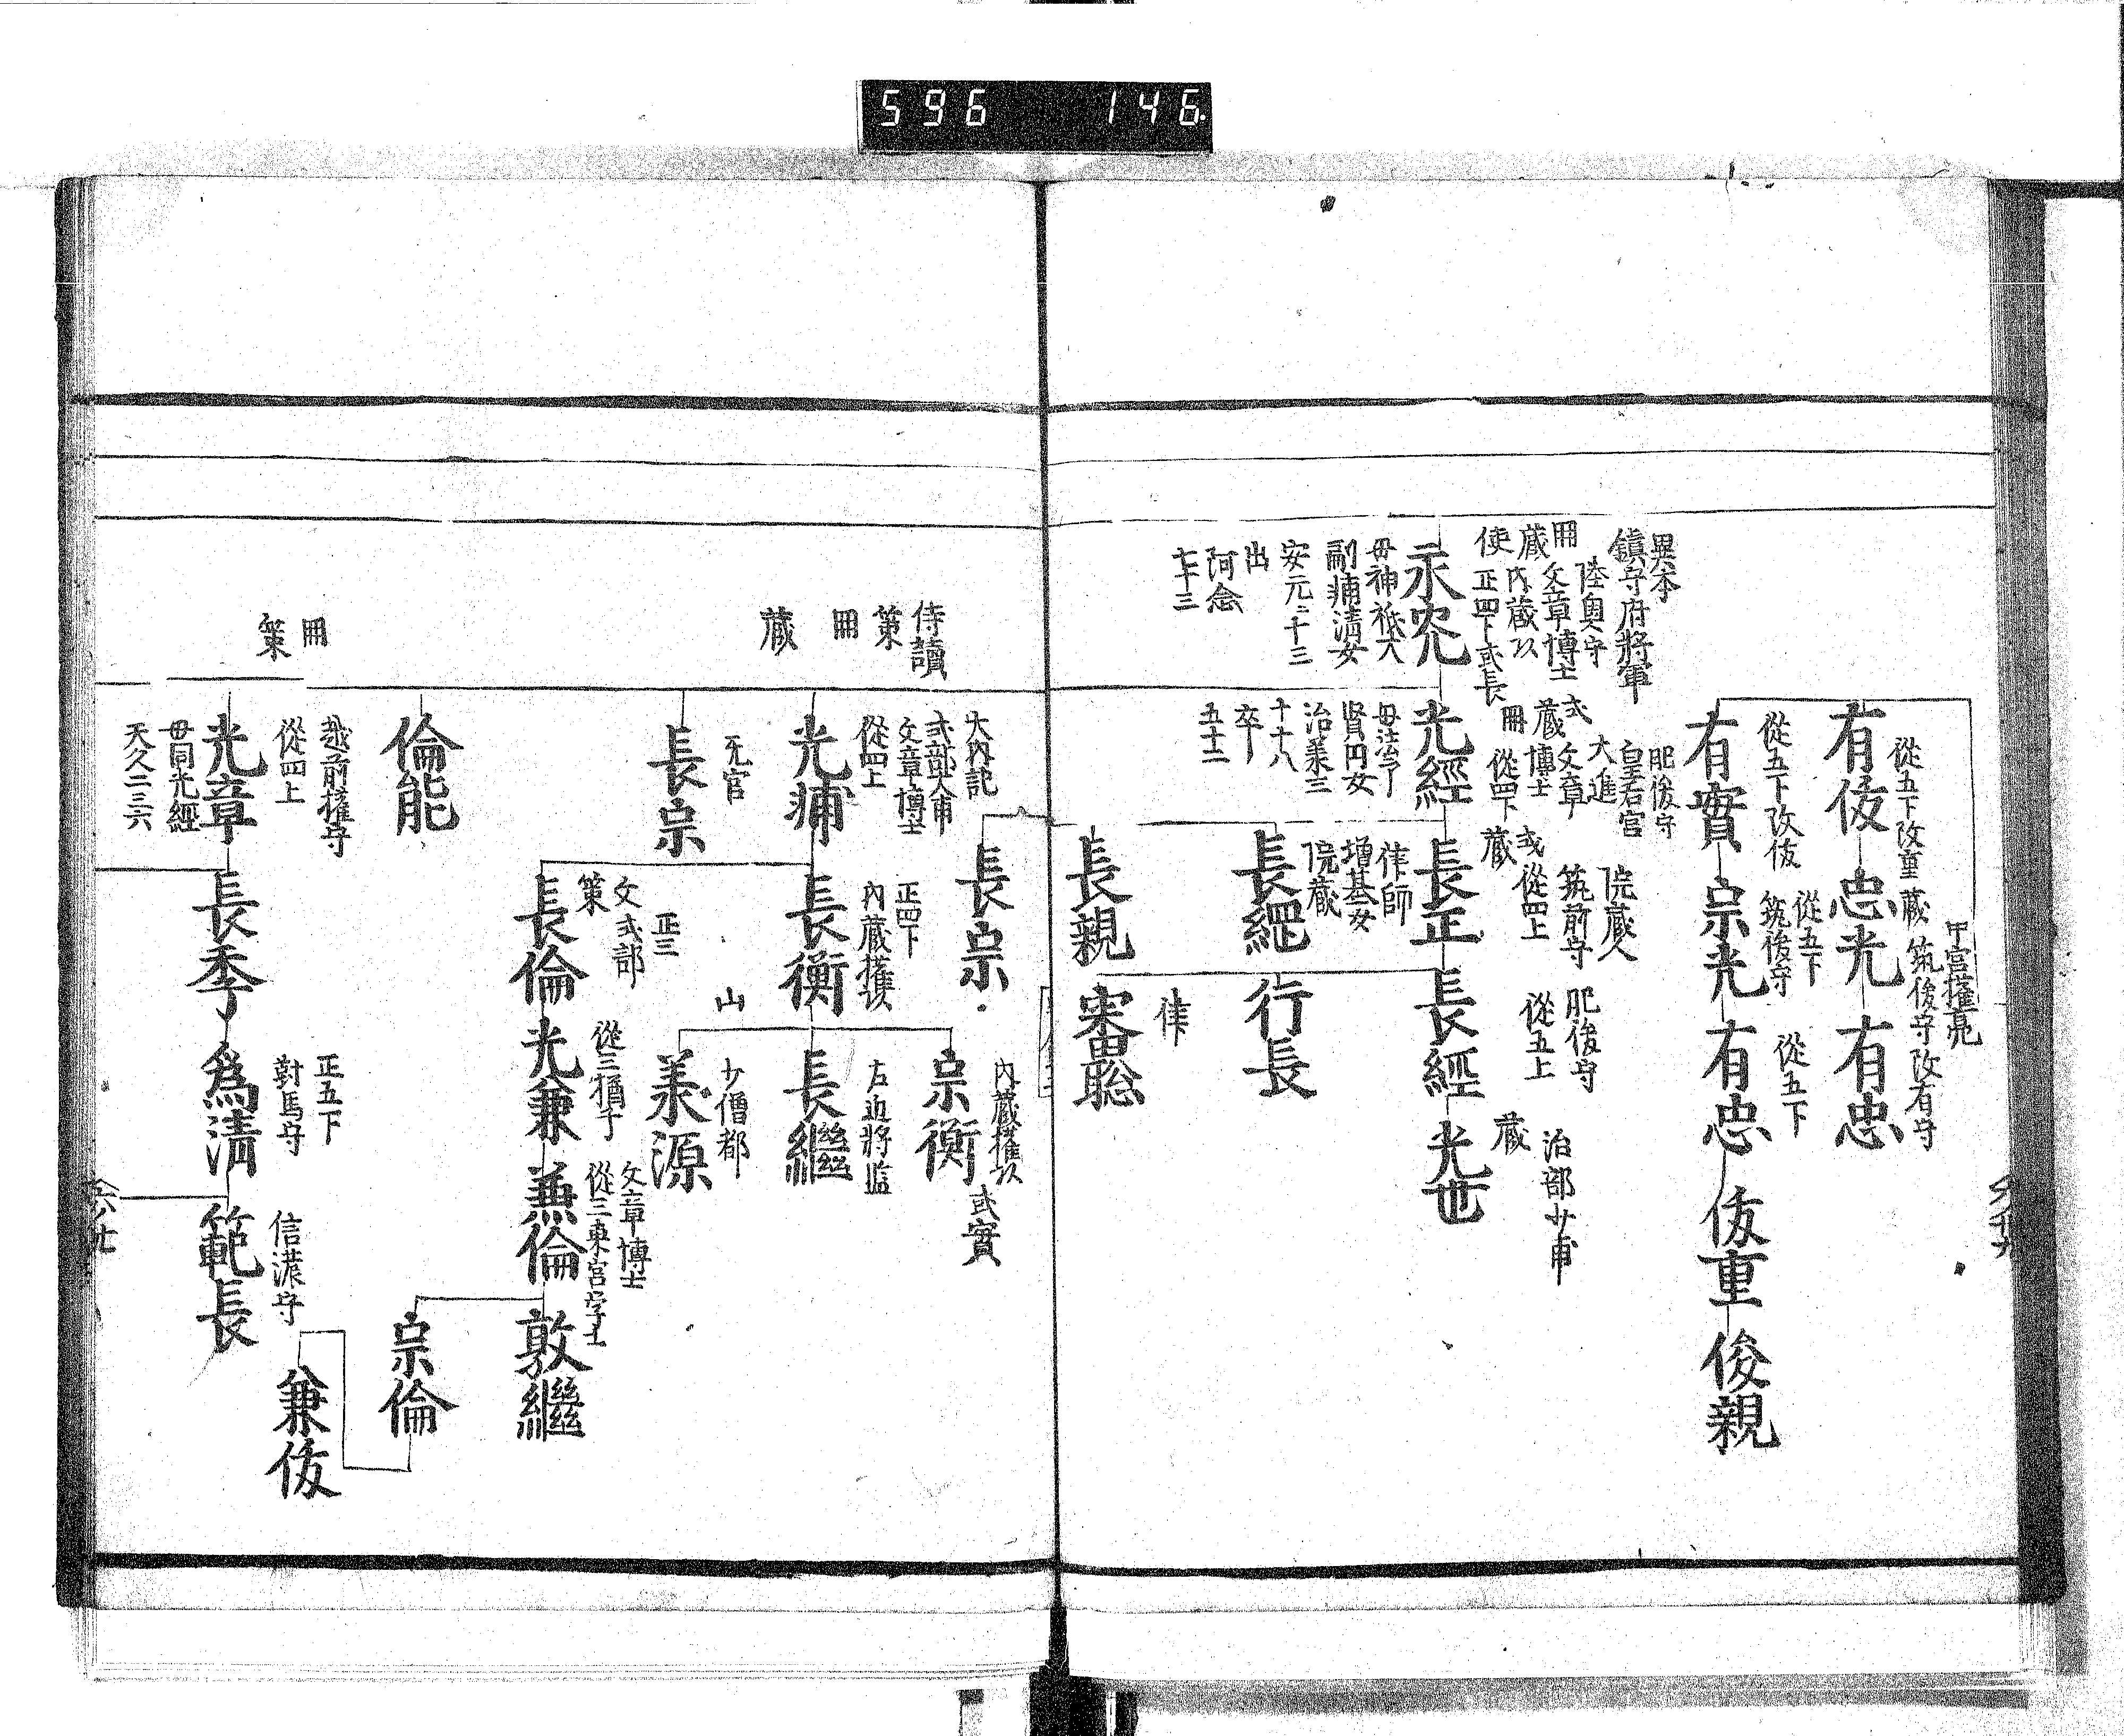 596 146
従五下改重
有俊
蔵
筑後守改有守
中宮権亮
忠光
有忠
従五下改俊
有實
従五下
筑後守
宗光
従五下
有忠
俊重
俊親
異本
鎮守府将軍
陸奥守
文章博士
冊
蔵
内蔵頭
使
正四下式長
永範
母神祇大
副輔清女
安元二十三
出
阿念
七十三
肥後守
皇后宮
大進
文章
博士
従四下
式
蔵
冊
光經
母法印
賢円女
治承三
十十八
卒
五十二
院蔵人
筑前守
従四上
式
蔵
長正
肥後守
従五上
長經
治部少甫
蔵
光也
作師
増基女
院蔵
長継
行長
長親
作
審聡
侍讀
策
冊
蔵
大内記
式部大甫
文章博士
従四上
光輔
長宗
正四下
内蔵権頭
長衡
内蔵権頭
式實
宗衡
右近将監
長継
山
少僧都
義源
无官
長宗
正三
文式部
策
長倫
従三猶子
光兼
文章博士
従三東宮学士
兼倫
敦継
宗倫
兼俊
倫能
冊
策
越前権守
従四上
光章
母同光經
天久二三六
長季
正五下
對馬守
為清
信濃守
範長